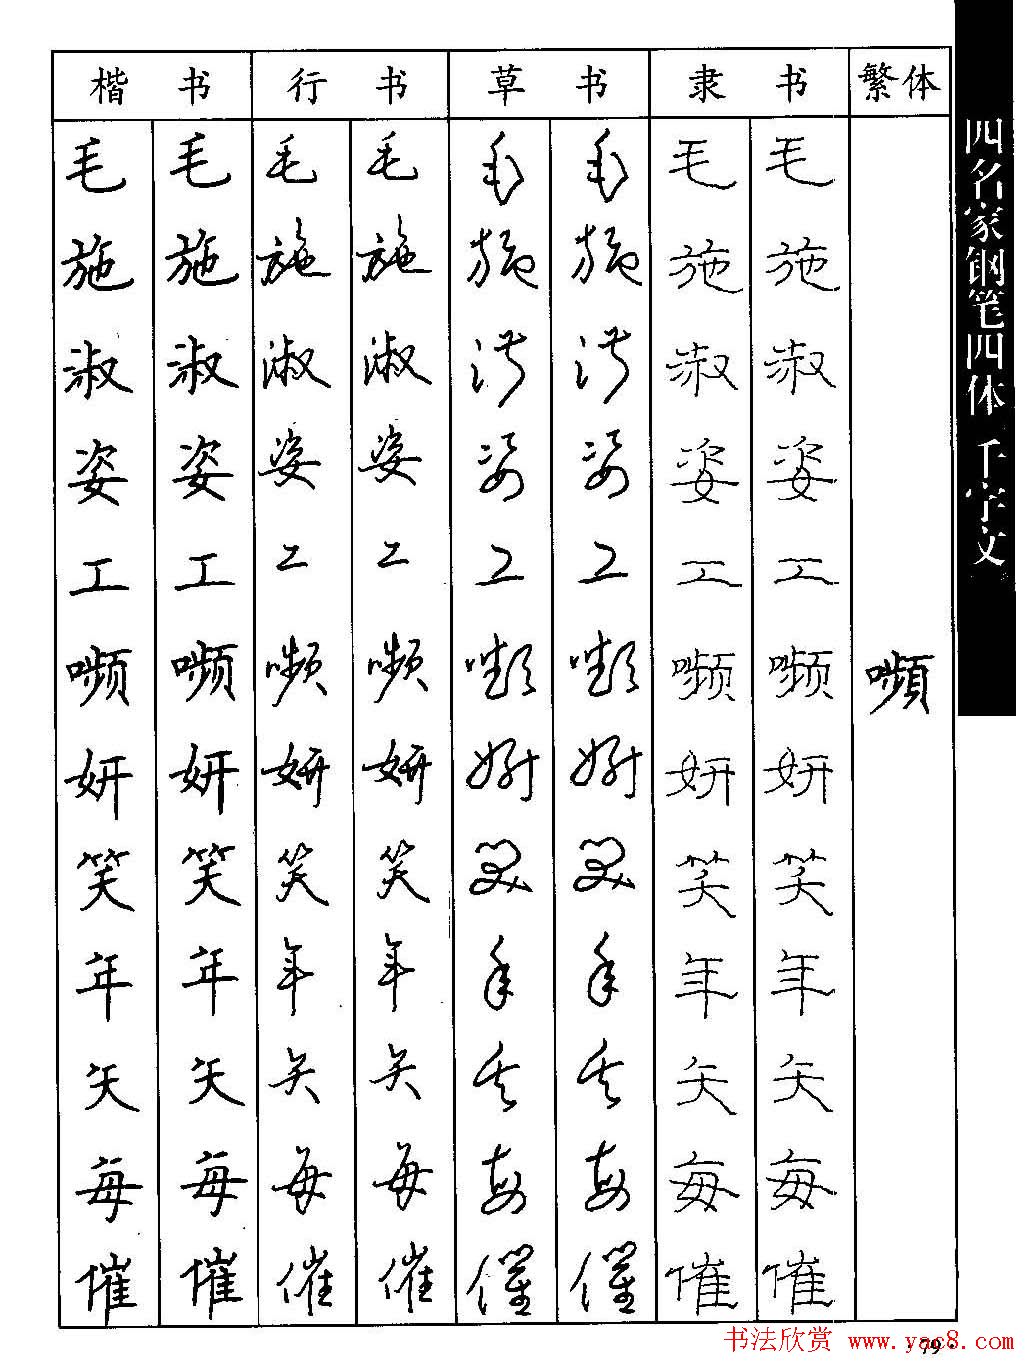 楷书 行书 草书 隶书 繁体
毛 毛 毛 毛 毛 毛 毛 毛
施 施 施 施 施 施 施 施
淑 淑 淑 淑 淑 淑 淑 淑
姿 姿 姿 姿 姿 姿 姿 姿
工 工 工 工 工 工 工 工
𬹏 𬹏 𬹏 𬹏 𬹏 𬹏 𬹏 𬹏 嚬
妍 妍 妍 妍 妍 妍 妍 妍
笑 笑 笑 笑 笑 笑 笑 笑
年 年 年 年 年 年 年 年
矢 矢 矢 矢 矢 矢 矢 矢
每 每 每 每 每 每 每 每
催 催 催 催 催 催 催 催
四名家钢笔四体千字文
书法欣赏 www.yac8.com
·79·